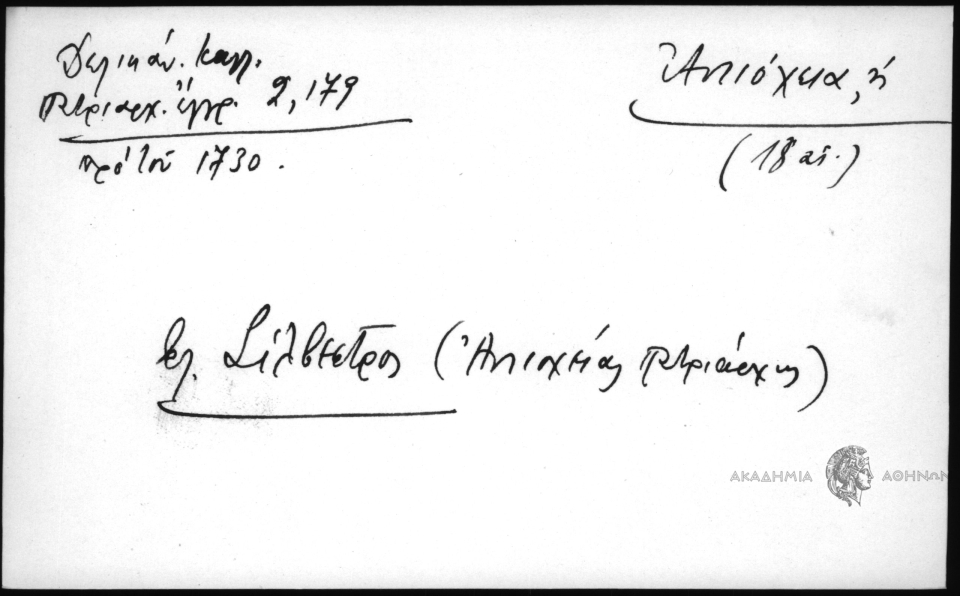 Δελικάν. Καλλ.
Πατριαρχ. ἔγγρ. 2, 179
πρὸ τοῦ 1730.
Ἀντιόχεια, ἡ
(18 αἰ.)
βλ. Σίλβεστρος (Ἀντιοχείας Πατριάρχης)
ΑΚΑΔΗΜΙΑ ΑΘΗΝΩΝ